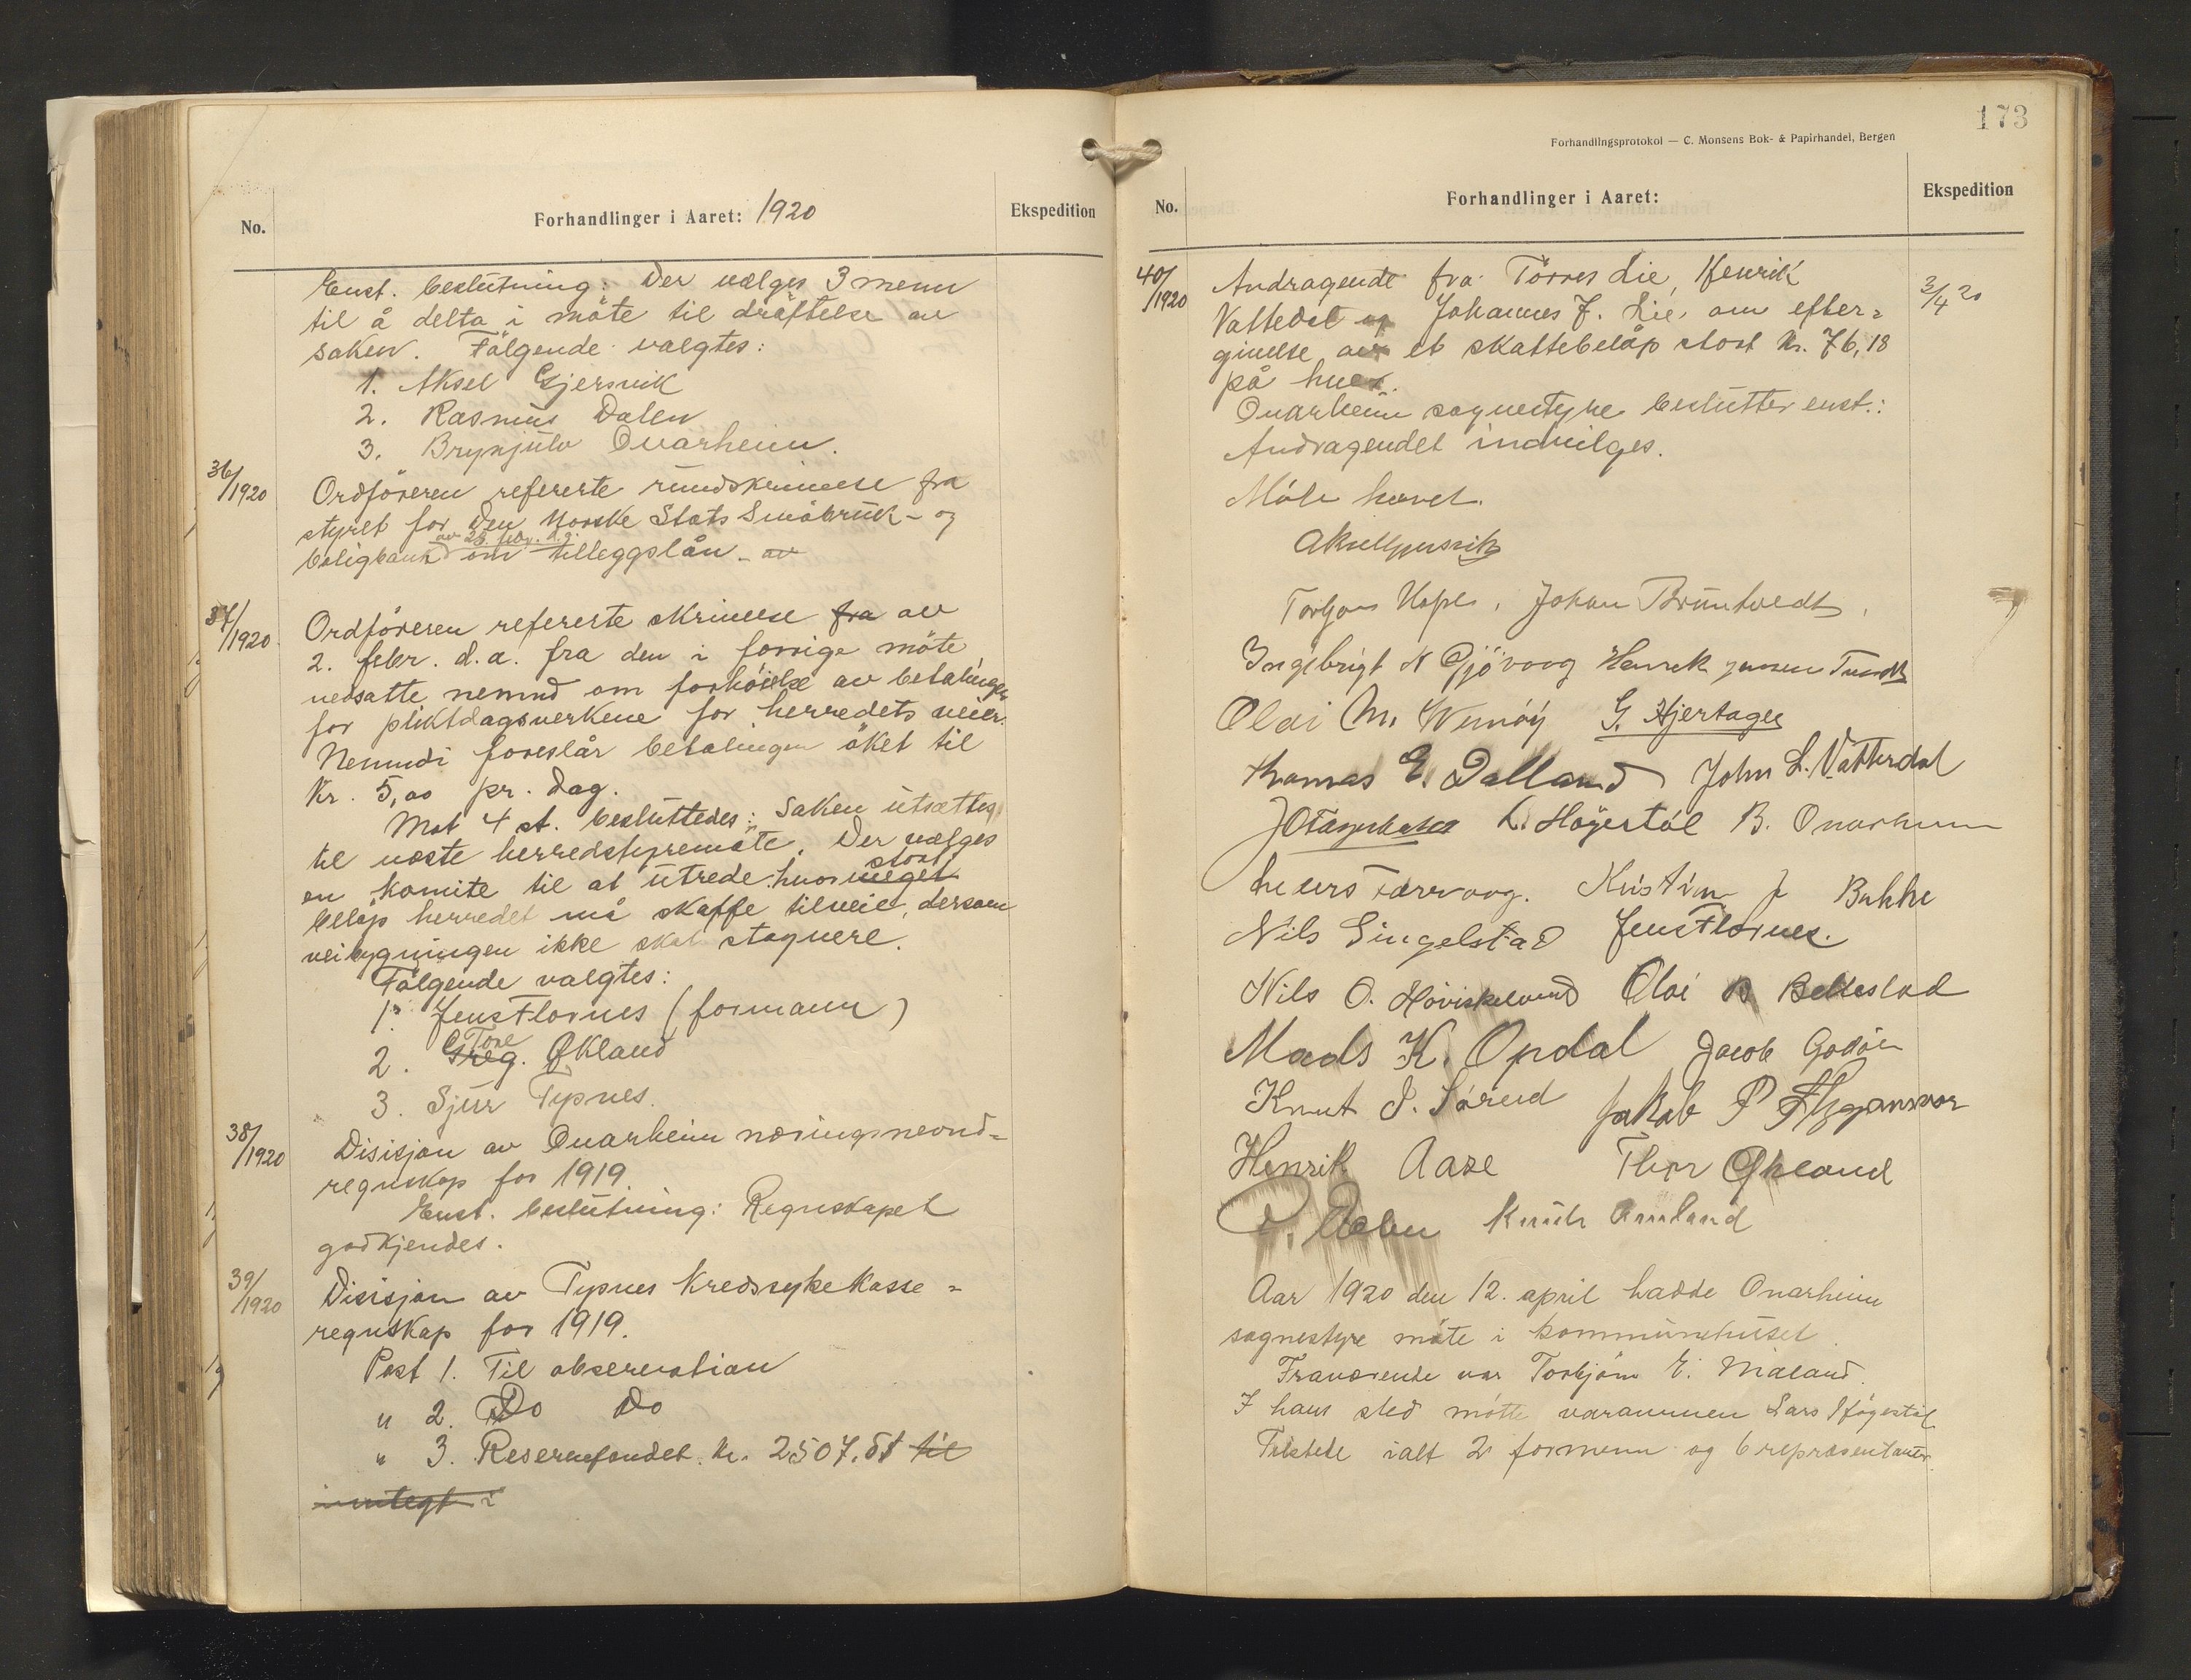 No.
Forhandlinger i Aaret: 1920
Ekspedition
Enst. beslutning: Der vælges 3 menn
til å delta i møte til drøftelse av
saken. Følgende valgtes:
1. Aksel Gjersvik
2. Rasmus Dalen
3. Brynjulv Onarheim.
36/1920
Ordføreren refererte rundskrivelse fra
styret for Den Norske Stats Småbruk- og
av 28. febr. d.å.
boligbank om tilleggslån. av
37/1920
Ordføreren refererte skrivelse fra av
2. febr. d.a. fra den i forrige møte
nedsatte nemnd om forhøielse av betalingen
for pliktdagsverkene for herredets veier.
Nemndi foreslår betalingen øket til
Kr. 5,00 pr. dag.
Mot 4 st. besluttedes: Saken utsættes
til næste herredstyremøte. Der vælges
stort
en komite til at utrede hvor meget
beløp herredet må skaffe tilveie, dersom
veibygningen ikke skal stagnere.
Følgende valgtes:
1. Jens Flornes (formann)
Tore
2. Greg. Økland
3. Sjur Typnes.
38/1920
Disisjon av Onarheim næringsnevnd-
regnskap for 1919.
Enst. beslutning: Regnskapet
godkjendes.
39/1920
Disisjon av Typnes Kredssykekasse-
regnskap for 1919.
Post 1. Til observation
" 2. Do Do
" 3. Reservefondet kr. 2507.81 til
inntegt i
173
Forhandlingsprotokol — C. Monsens Bok- & Papirhandel, Bergen
No.
Forhandlinger i Aaret:
Ekspedition
40/1920
3/4 20
Andragende fra Tørres Lie, Henrik
Vattedal og Johannes J. Lie om efter-
givelse av et skattebeløp stort kr. 76,18
på hver.
Onarheim sognestyre beslutter enst.:
Andragendet indvilges.
Møte hævet.
Aksel Gjersvik
Johan Bruntvedt
Ingebrigt N Gjøvaag Henrik Jensen
Olai M. Vernøy G. Hjertager
Thomas E. Dalland John L. Vatterdal
L. Høgestøl B. Onarheim
Færvaag. Kristian J Bakke
Nils Singelstad Jens Flornes.
Nils O. Høviskeland Olai B Belleslad
Mads K. Opdal Jacob Godøen
Knut I. Søreid Jakob P
Henrik Aase Thor Økland
R. Dalen Knut Amland
Aar 1920 den 12. april hadde Onarheim
sognestyre møte i kommunehuset.
Fraværende var Torbjørn E. Maland.
I hans sted møtte varamann Lars Høgestøl
Tilstede ialt 2 formenn og 6 repræsentanter.